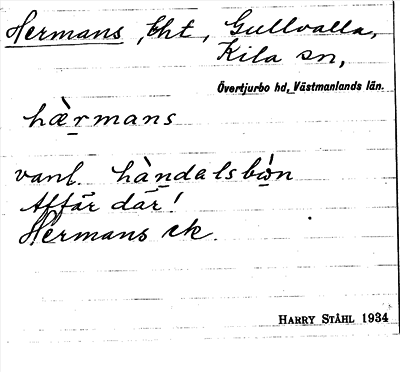 Hermans, tht, Gullvalla,
Kila sn,
Övertjurbo hd, Västmanlands län.
hà̀ṟmans
vanl. hàṉdalsbòṉ
Affär där!
Hermans ek.
HARRY STÅHL 1934